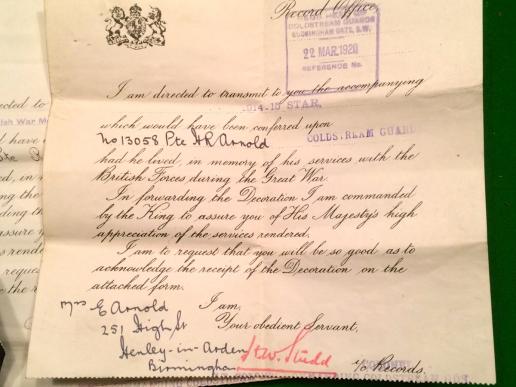 Record Office,
COLDSTREAM GUARDS
BUCKINGHAM GATE, S.W.
22 MAR. 1920
REFERENCE No.
I am directed to transmit to you the accompanying
1914-15 STAR,
which would have been conferred upon
No 13058 Pte H R Arnold
COLDSTREAM GUARDS
had he lived, in memory of his services with the
British Forces during the Great War.
In forwarding the Decoration I am commanded
by the King to assure you of His Majesty's high
appreciation of the services rendered.
I am to request that you will be so good as to
acknowledge the receipt of the Decoration on the
attached form.
I am,
Your obedient Servant,
Mrs E Arnold
251 High St
Henley-in-Arden
Birmingham
COLONEL
i/c Records.